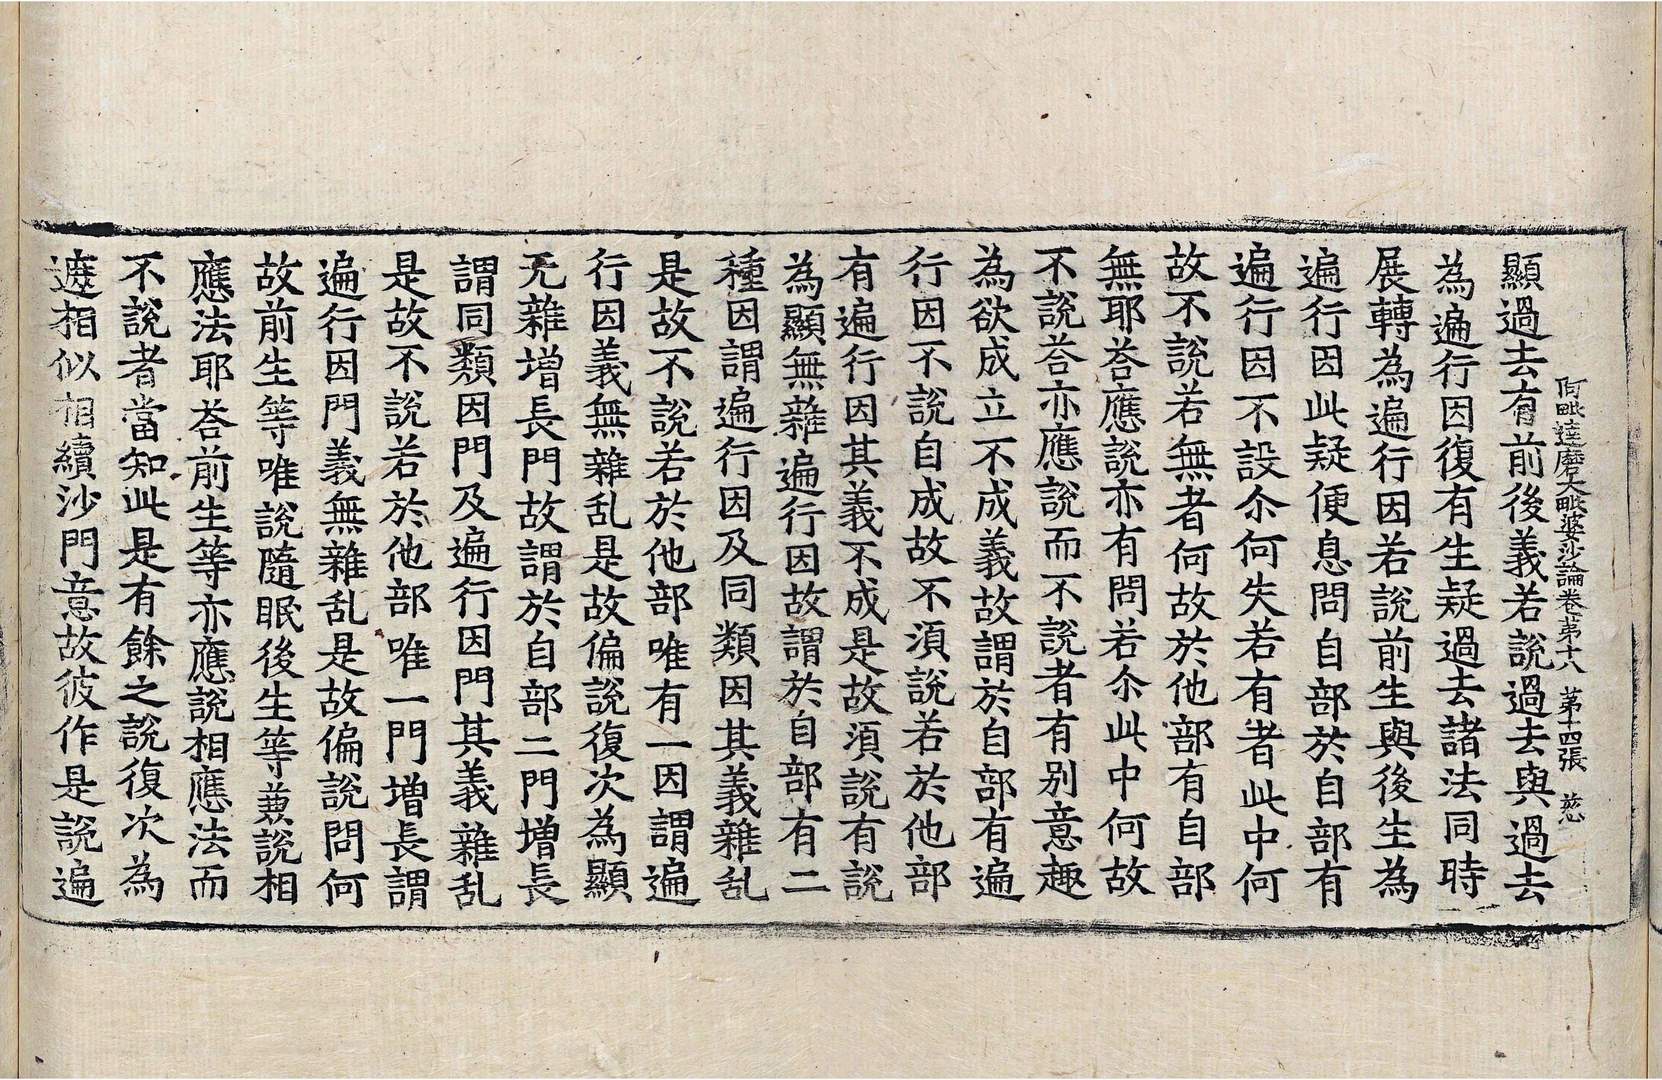 阿毗達磨大毗婆沙論卷第十八　第十四張　慈
顯過去有前後義若說過去與過去
為遍行因復有生疑過去諸法同時
展轉為遍行因若說前生與後生為
遍行因此疑便息問自部於自部有
遍行因不設尒何失若有者此中何
故不說若無者何故於他部有自部
無耶荅應說亦有問若尒此中何故
不說荅亦應說而不說者有别意趣
為欲成立不成義故謂於自部有遍
行因不說自成故不湏說若於他部
有遍行因其義不成是故湏說有說
為顯無雜遍行因故謂於自部有二
種因謂遍行因及同類因其義雜乱
是故不說若於他部唯有一因謂遍
行因義無雜乱是故偏說復次為顯
无雜增長門故謂於自部二門增長
謂同類因門及遍行因門其義雜乱
是故不說若於他部唯一門增長謂
遍行因門義無雜乱是故偏說問何
故前生等唯說隨眠後生等兼說相
應法耶荅前生等亦應說相應法而
不說者當知此是有餘之說復次為
遮相似相續沙門意故彼作是說遍